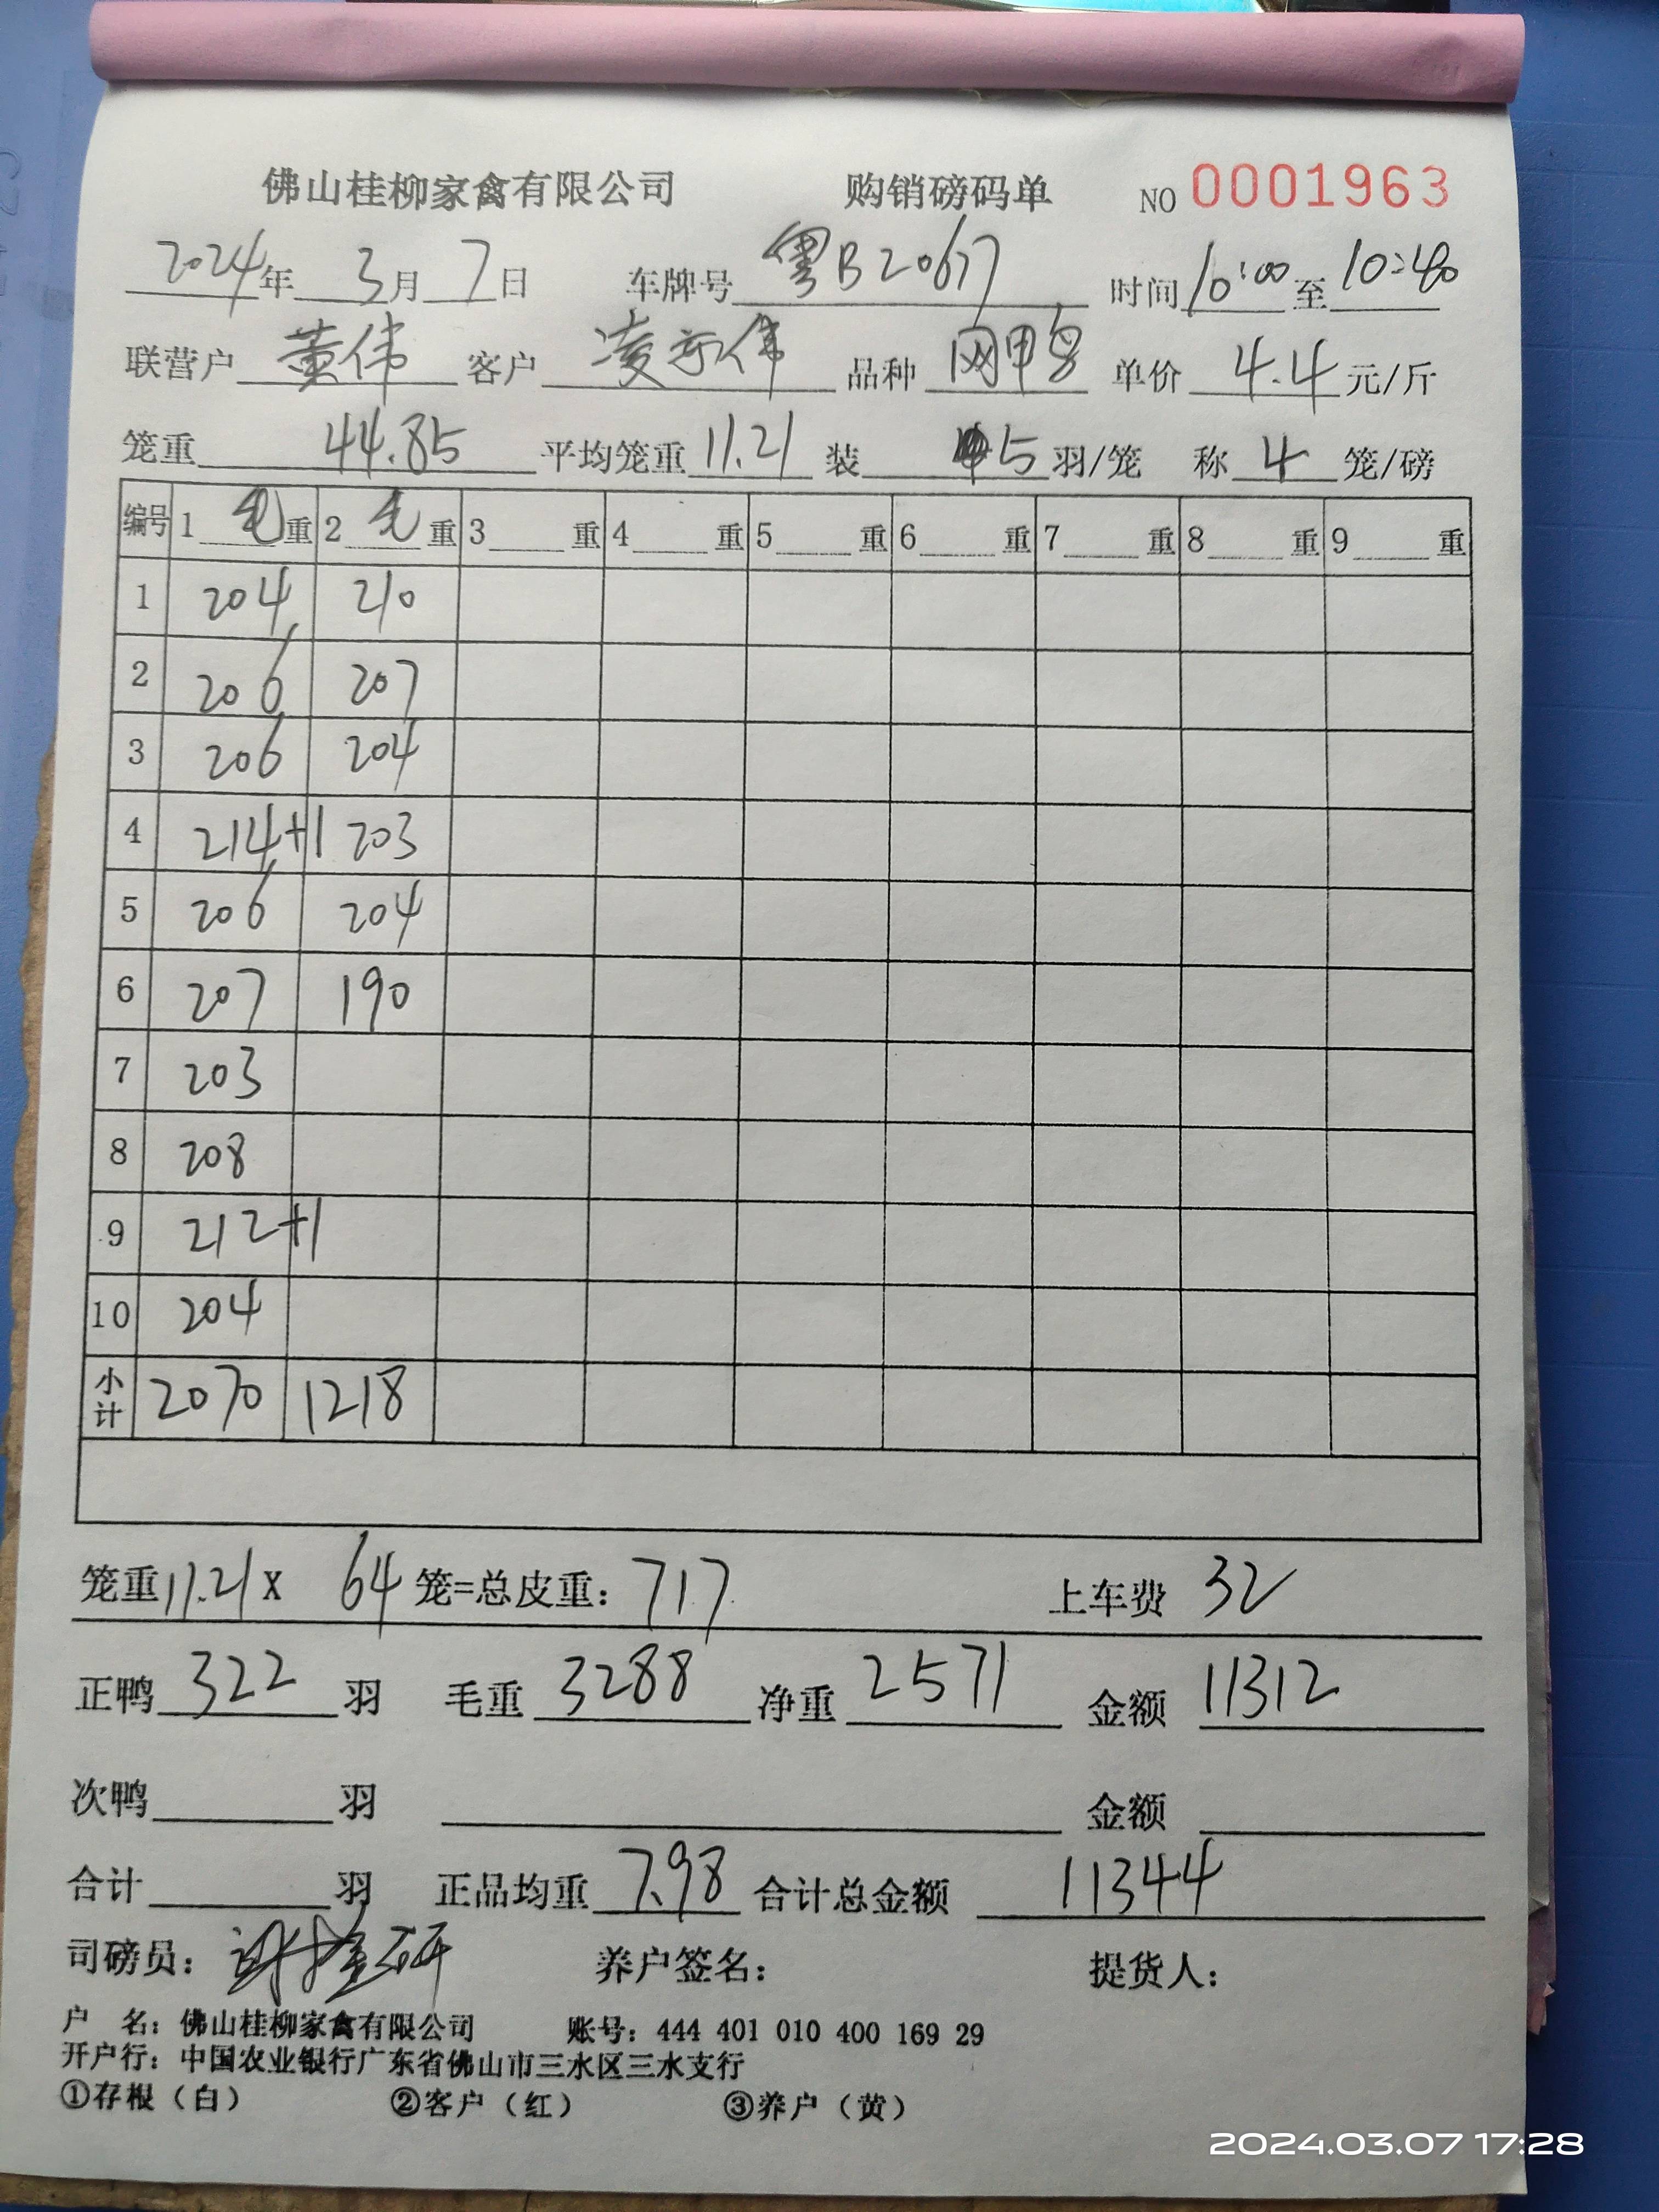 佛山桂柳家禽有限公司 购销磅码单 NO 0001963
2024年 3月 7日 车牌号 粤B20677 时间 10:00 至 10:40
联营户 董伟 客户 凌 伟 品种 网甲 单价 4.4 元/斤
笼重 44.85 平均笼重 11.21 装 5 羽/笼 称 4 笼/磅
编号 1 毛重 2 毛重 3 重 4 重 5 重 6 重 7 重 8 重 9 重
1 204 210
2 206 207
3 206 204
4 214+1 203
5 206 204
6 207 190
7 203
8 208
9 212+1
10 204
小计 2070 1218
笼重 11.21 X 64 笼=总皮重: 717 上车费 32
正鸭 322 羽 毛重 3288 净重 2571 金额 11312
次鸭 羽 金额
合计 羽 正品均重 7.98 合计总金额 11344
司磅员: 养户签名: 提货人:
户 名: 佛山桂柳家禽有限公司 账号: 444 401 010 400 169 29
开户行: 中国农业银行广东省佛山市三水区三水支行
①存根（白） ②客户（红） ③养户（黄）
2024.03.07 17:28